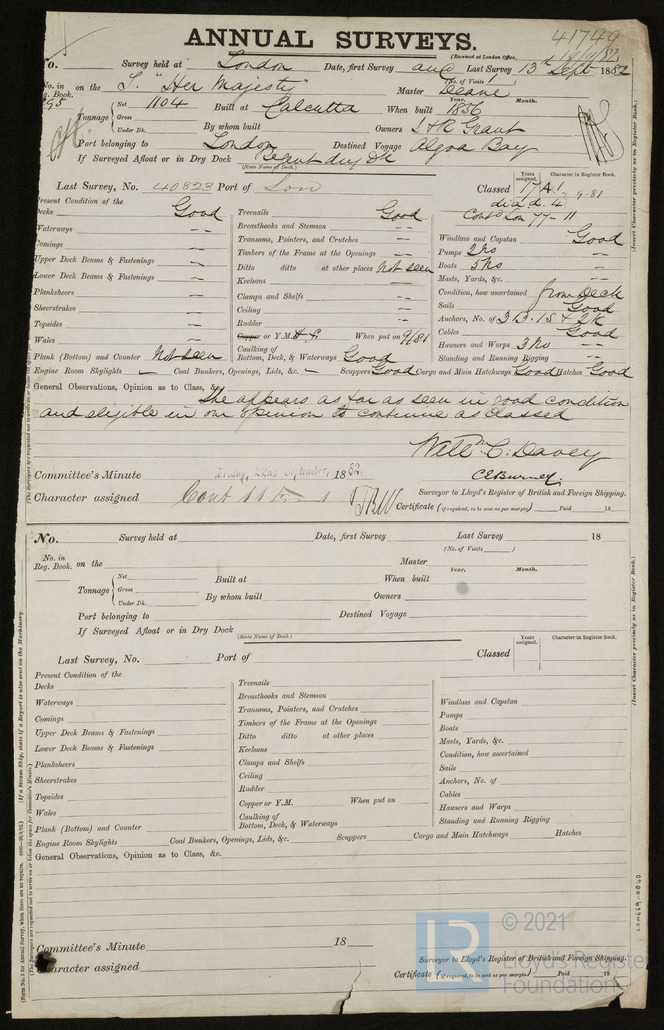 ANNUAL SURVEYS.
41749
(Received at London Office,
No. Survey held at London Date, first Survey aug Last Survey 13th Sept 1882
(No. of Visits )
No. in Reg. Book. on the S. "Her Majesty" Master Deane
Net 1104 Built at Calcutta When built 1856
Year. Month.
Tonnage Gross
Under Dk. By whom built Owners D & R Grant
Port belonging to London Destined Voyage Algoa Bay
If Surveyed Afloat or in Dry Dock Regent dry Dk
(State Name of Dock.)
Last Survey, No. 40823 Port of Lon Classed 17 A1 9.81
Years assigned. Character in Register Book.
Contd Lon 77-11
Present Condition of the
Decks Good
Waterways
Comings
Upper Deck Beams & Fastenings
Lower Deck Beams & Fastenings
Planksheers
Sheerstrakes
Topsides
Wales
Plank (Bottom) and Counter Not seen
Treenails Good
Breasthooks and Stemson
Transoms, Pointers, and Crutches
Timbers of the Frame at the Openings
Ditto ditto at other places Not seen
Keelsons
Clamps and Shelfs
Ceiling
Rudder
Copper or Y.M. When put on 9/81
Caulking of
Bottom, Deck, & Waterways Good
Windlass and Capstan Good
Pumps 2 No
Boats 5 No
Masts, Yards, &c.
Condition, how ascertained from Deck
Sails Good
Anchors, No. of 3 B. 1 S & 2 K
Cables Good
Hawsers and Warps 3 No
Standing and Running Rigging
Engine Room Skylights — Coal Bunkers, Openings, Lids, &c. — Scuppers Good Cargo and Main Hatchways Good Hatches Good
General Observations, Opinion as to Class, &c.
She appears as far as seen in good condition
and eligible in our opinion to continue as classed
Willm C. Davey
C E Burney
Committee's Minute Friday, 22nd September, 1882
Surveyor to Lloyd's Register of British and Foreign Shipping.
Character assigned
Certificate (if required, to be sent as per margin) Paid 18
No. Survey held at Date, first Survey Last Survey 18
(No. of Visits )
No. in Reg. Book. on the Master
Net Built at When built
Year. Month.
Tonnage Gross
Under Dk. By whom built Owners
Port belonging to Destined Voyage
If Surveyed Afloat or in Dry Dock
(State Name of Dock.)
Last Survey, No. Port of Classed
Years assigned. Character in Register Book.
Present Condition of the
Decks
Waterways
Comings
Upper Deck Beams & Fastenings
Lower Deck Beams & Fastenings
Planksheers
Sheerstrakes
Topsides
Wales
Plank (Bottom) and Counter
Treenails
Breasthooks and Stemson
Transoms, Pointers, and Crutches
Timbers of the Frame at the Openings
Ditto ditto at other places
Keelsons
Clamps and Shelfs
Ceiling
Rudder
Copper or Y.M. When put on
Caulking of
Bottom, Deck, & Waterways
Windlass and Capstan
Pumps
Boats
Masts, Yards, &c.
Condition, how ascertained
Sails
Anchors, No. of
Cables
Hawsers and Warps
Standing and Running Rigging
Engine Room Skylights Coal Bunkers, Openings, Lids, &c. Scuppers Cargo and Main Hatchways Hatches
General Observations, Opinion as to Class, &c.
Committee's Minute 18
Character assigned
Surveyor to Lloyd's Register of British and Foreign Shipping.
Certificate (if required, to be sent as per margin) Paid 18
(Insert Character precisely as in Register Book.)
(Insert Character precisely as in Register Book.)
LON669-0040
© 2021
Lloyd's Register
Foundation